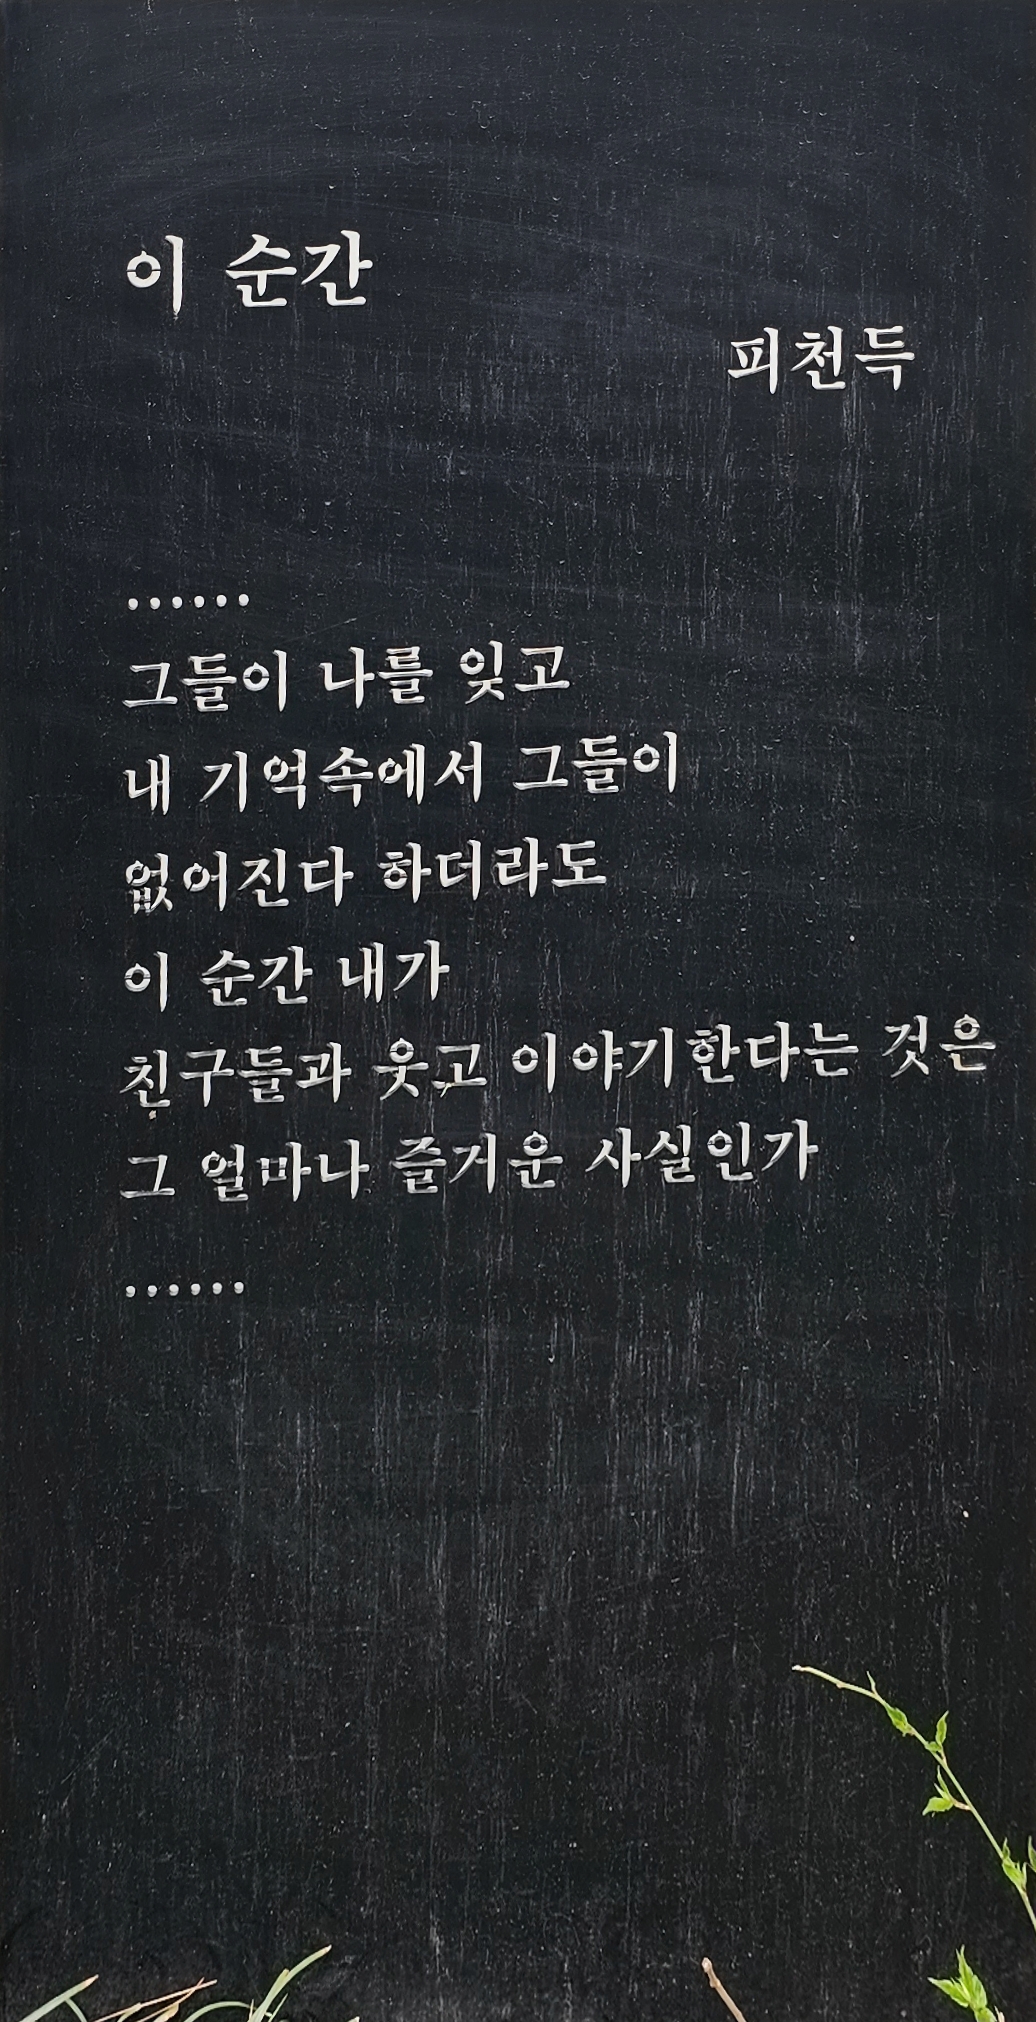 이 순간
피천득
......
그들이 나를 잊고
내 기억속에서 그들이
없어진다 하더라도
이 순간 내가
친구들과 웃고 이야기한다는 것은
그 얼마나 즐거운 사실인가
......